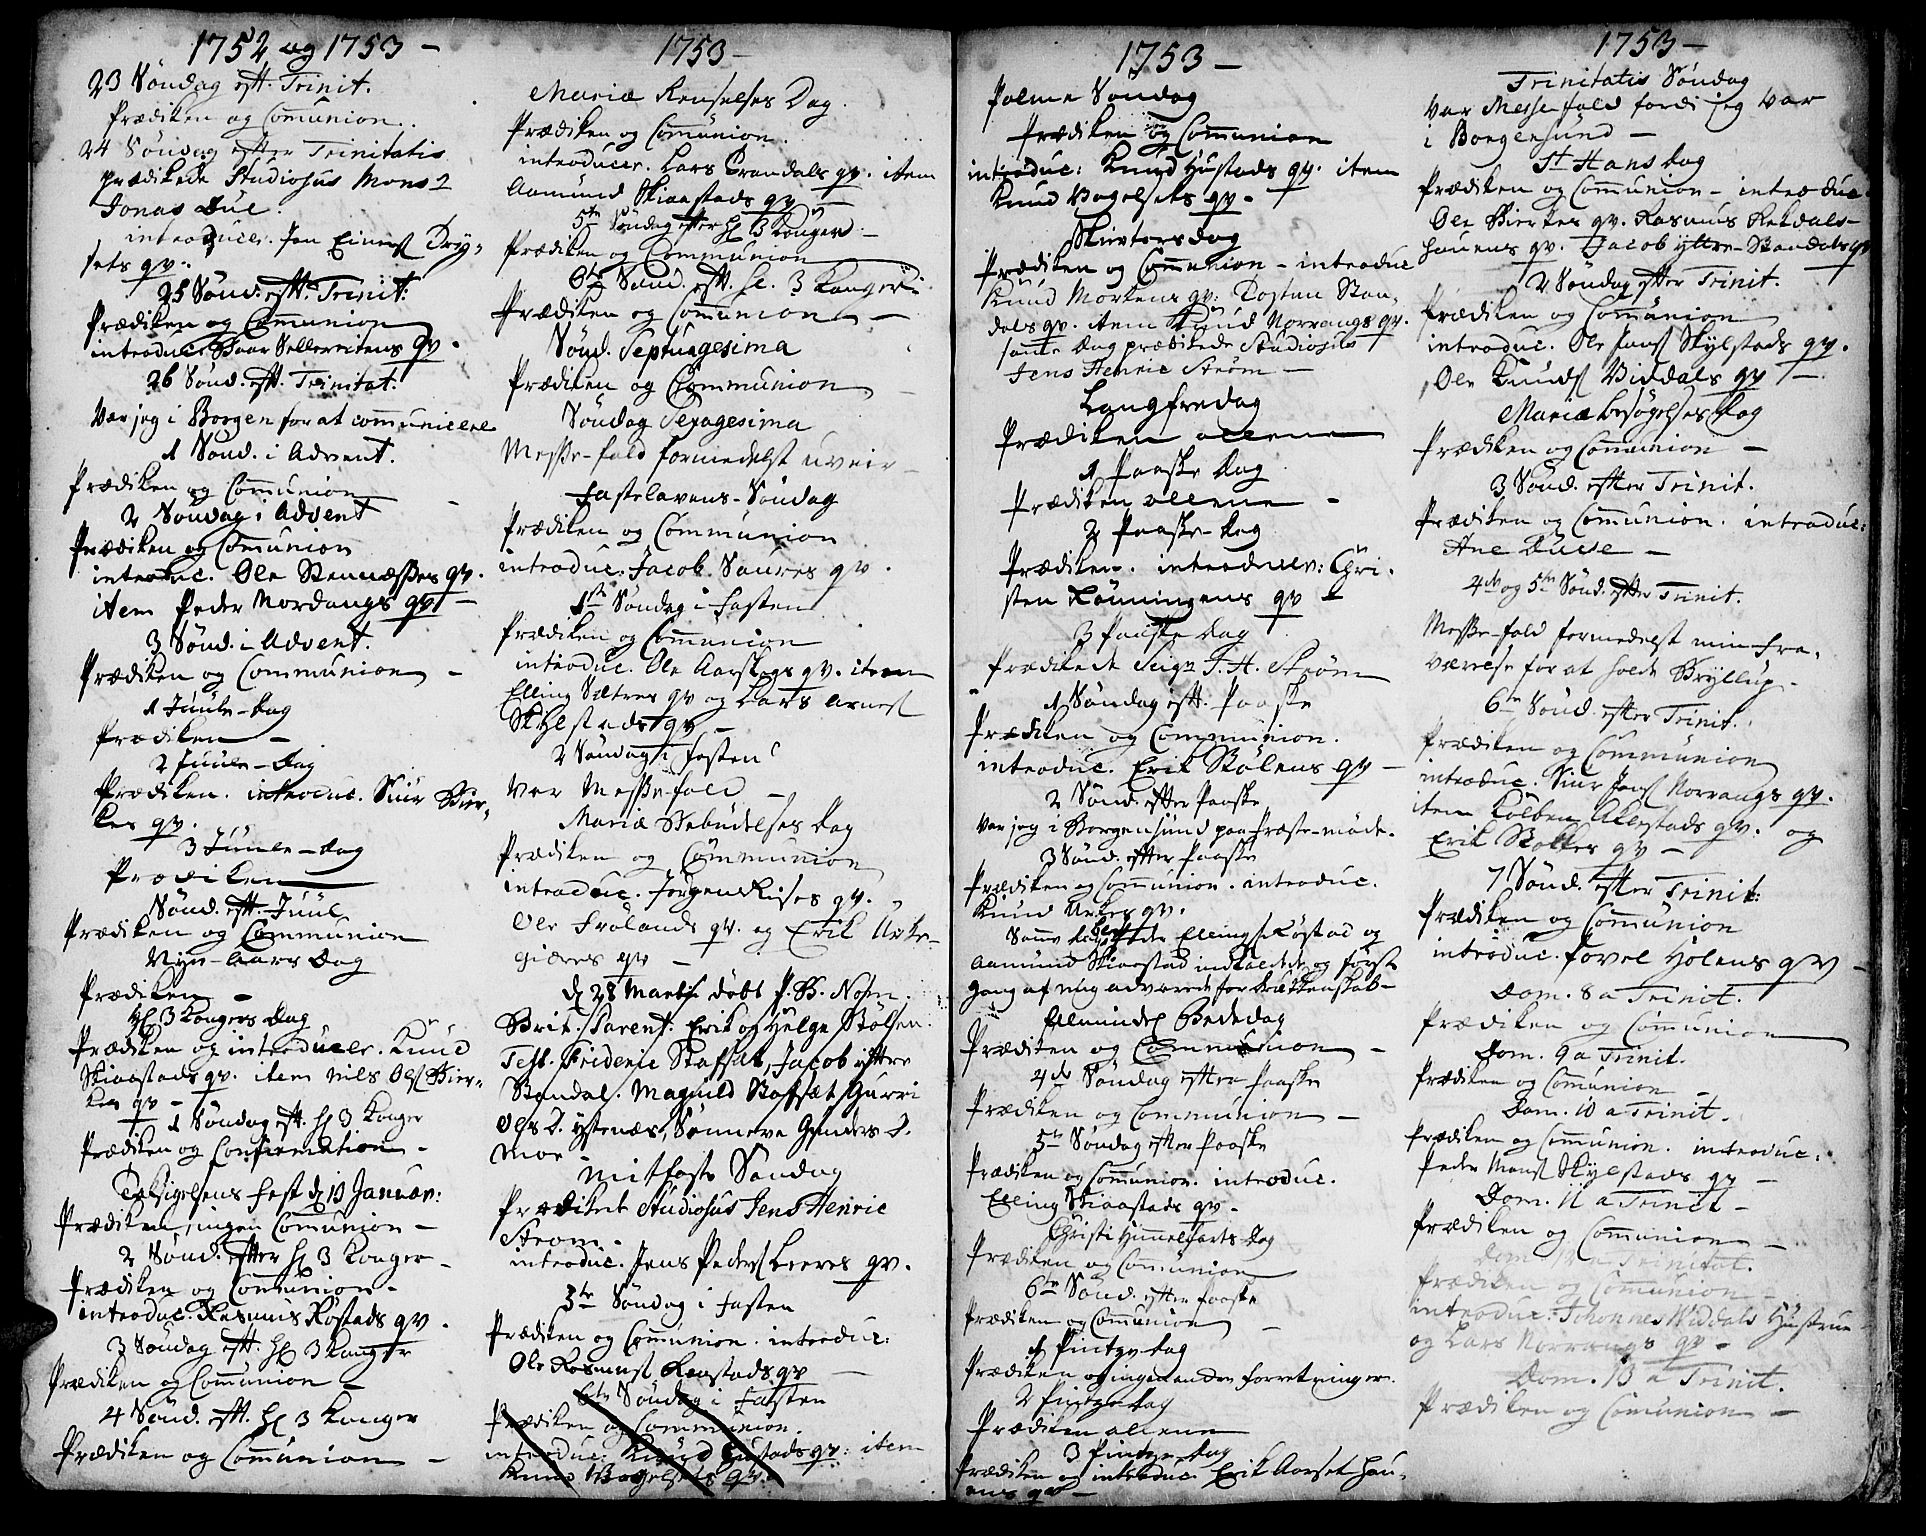 1752 og 1753 -
23 Søndag eft. Trinit.
Prædiken og Communion.
24 Søndag efter Trinitatis
prædikede Studiosus Mons.
Jonas Bue.
introducer. Jon Einers Dryg-
sets qv.
25 Sønd. eft. Trinit:
Prædiken og Communion
introduc. Baar Sellereitens qv.
26 Sønd. eft. Trinitat:
Var jeg i Borgen for at communicere
1 Sønd. i Advent.
Prædiken og Communion
2 Søndag i Advent
Prædiken og Communion
introduc. Ole Stennæsses qv.
item Peder Nordangs qv -
3 Sønd. i Advent.
Prædiken og Communion -
1 Juule-Dag
Prædiken -
2 Juule-Dag
Prædiken. introduc. Siur Bier-
kes qv.
3 Juule-Dag
Prædiken
Sønd. eft. Juul
Prædiken og Communion
Nyt-Aars Dag
Prædiken -
Hl 3 Kongers Dag
Prædiken og introducer. Knud
Skiaastads qv. item Nils Ols Bier-
kes qv -
1 Søndag eft. Hl 3 Konger
Prædiken og Confirmation -
Taksigelsens Fest d 13 Januar:
Prædiken, ingen Communion -
2 Sønd. efter Hl 3 Konger -
Prædiken og Communion -
introduc. Rasmus Røstads qv.
3 Søndag eft. Hl 3 Konger
Prædiken og Communion -
4 Sønd. eft. Hl 3 Konger
Prædiken og Communion -
1753 -
Mariæ Renselses Dag.
Prædiken og Communion
introducer. Lars Brandals qv. item
Aamund Skiaastads qv -
5te Søndag efter Hl 3 Konger -
Prædiken og Communion
6te Sønd. eft. Hl. 3 Konger.
Prædiken og Communion -
Sønd. Septuagesima
Prædiken og Communion
Søndag Sexagesima
Messe-fald formedelst uveir -
Fastelavens-Søndag
Prædiken og Communion
introduc. Jacob Saures qv.
1ste Søndag i Fasten
Prædiken og Communion
introduc. Ole Aarskogs qv. item
Elling Sætres qv og Lars Arnes
Skylstads qv -
2 Søndag i Fasten
Var Messe-fald -
Mariæ Bebudelses Dag
Prædiken og Communion
introduc. Jørgen Rises qv.
Ole Frølands qv. og Erik Urke-
gierdes qv -
d 28 Martii døbt P. B. Nom.
Brit. Parent. Erik og Helge Stølsen.
Test. Frideric Staffset, Jacob yttre
Standal. Magnild Staffset, Gurri
Ols D. Ystenæs, Sønneve Gunders D.
Moe -
Mitfaste Søndag
Prædikede Studiosus Jens Henric
Strøm -
introduc. Jens Peders Leeres qv.
3te Søndag i Fasten
Prædiken og Communion. introduc:
Ole Rasmus Raastads qv
Søndag i Fasten
Prædiken og Communion.
introduc. Knud Hustads qv: item
Knud Bogelsets qv.
1753 -
Palme Søndag
Prædiken og Communion
introduc: Knud Hustads qv. item
Knud Bogelsets qv -
Skiertorsdag
Prædiken og Communion - introduc
Knud Mortens qv. Tosten Stan-
dals qv. item Knud Norrangs qv.
samme Dag prædikede Studiosus
Jens Henric Strøm -
Langfredag
Prædiken allene
1 Paaske Dag
Prædiken allene -
2 Paaske-Dag
Prædiken. introducer: Chri-
sten Rønningens qv -
3 Paaske Dag
Prædikede Seigr J. H. Strøm
1 Søndag eft. Paaske
Prædiken og Communion.
introduc. Erik Stølens qv -
2 Sønd. efter Paaske
Var jeg i Borgensund paa Præste-møde.
3 Sønd. efter Paaske
Prædiken og Communion. introduc.
Knud Urkes qv.
Aamund Skiaastad indkaldede og første
gang af mig advarede for
Almindel Bededag
Prædiken og Communion -
4de Søndag efter Paaske
Prædiken og Communion -
5te Søndag efter Paaske
Prædiken og Communion. introduc.
Elling Skiaastads qv -
Christi Himmelfarts Dag
Prædiken og Communion
6te Sønd. efter Paaske
Prædiken og Communion
1 Pintze Dag
Prædiken og ingen anden forretninger.
2 Pintze Dag
Prædiken allene
3 Pintze Dag
Prædiken og introduc. Erik Aarset hau-
ens qv -
1753 -
Trinitatis Søndag
Var Messe fald fordi jeg var
i Borgensund -
St Hans Dag
Prædiken og Communion - introduc.
Ole Bierkes qv. Rasmus Rekdals-
hauens qv. Jacob yttre-Standals qv
2 Søndag efter Trinit.
Prædiken og Communion
introduc. Ole Jons Skylstads qv.
Ole Knuds Viddals qv -
Mariæ besøgelses Dag
Prædiken og Communion -
3 Sønd. efter Trinit.
Prædiken og Communion. introduc:
Ane -
4de og 5te Sønd. efter Trinit.
Messe-fald formedelst min fra-
værelse for at holde Bryllup -
6te Sønd. efter Trinit.
Prædiken og Communion
introduc. Siur Jons Norrangs qv.
item Kolben Aklestads qv. og
Erik Stokkes qv -
7 Sønd. efter Trinit:
Prædiken og Communion
introduc. Povel Hølens qv -
Dom. 8 a Trinit.
Prædiken og Communion
Dom. 9 a Trinit.
Prædiken og Communion
Dom. 10 a Trinit.
Prædiken og Communion. introduc.
Peder Mons Skylstads qv -
Dom. 11 a Trinit -
Prædiken og Communion -
Dom. 12 a Trinitat.
Prædiken og Communion -
introduc. Johannes Widdals Hustrue
og Lars Norrangs qv -
Dom. 13 a Trinit.
Prædiken og Communion -